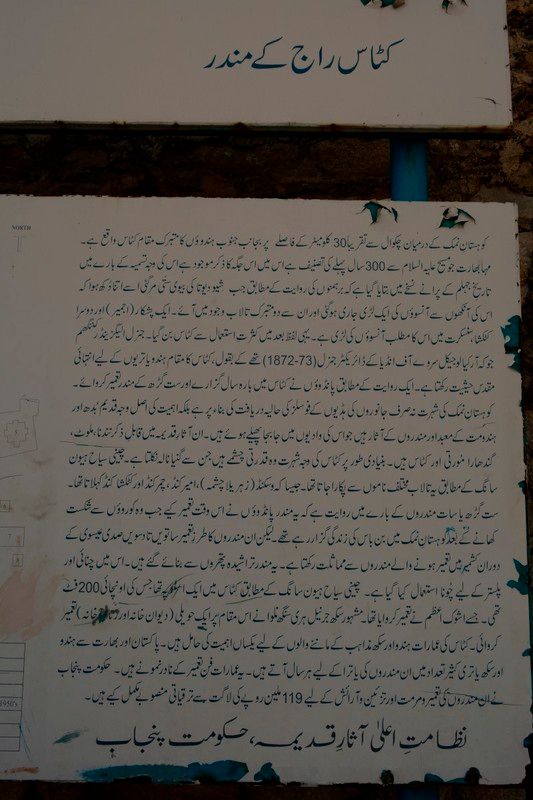 کٹاس راج کے مندر
NORTH
کوہستان نمک کے درمیان چکوال سے تقریباً 30 کلومیٹر کے فاصلے پر بجانب جنوب ہندوؤں کا متبرک مقام کٹاس واقع ہے۔
مہابھارت جو مسیح علیہ السلام سے 300 سال پہلے کی تصنیف ہے اس میں اس جگہ کا ذکر موجود ہے اس کی وجہ تسمیہ کے بارے میں
تاریخ جہلم کے پرانے نسخے میں بتایا گیا ہے کہ برہمنوں کی روایت کے مطابق جب شیو دیوتا کی بیوی ستی مر گئی اسے اتنا دکھ ہوا کہ
اس کی آنکھوں سے آنسوؤں کی ایک لڑی جاری ہو گئی اور ان سے دو متبرک تالاب وجود میں آئے۔ ایک پشکار (اجمیر) اور دوسرا
کٹکشا، سنسکرت میں اس کا مطلب آنسوؤں کی لڑی ہے۔ یہی لفظ بعد میں کثرت استعمال سے کٹاس بن گیا۔ جنرل الیگزینڈر کننگھم
جو کہ آرکیالوجیکل سروے آف انڈیا کے ڈائریکٹر جنرل (1872-73) تھے کے بقول، کٹاس کا مقام ہندو یاتریوں کے لیے انتہائی
مقدس حیثیت رکھتا ہے۔ ایک روایت کے مطابق پانڈوؤں نے کٹاس میں بارہ سال گزارے اور ست گڑھ کے مندر تعمیر کروائے۔
کوہستان نمک کی شہرت نہ صرف جانوروں کی ہڈیوں کے فوسلز کی حالیہ دریافت کی بناء پر ہے بلکہ اہمیت کی اصل وجہ قدیم بدھ اور
ہندومت کے معبد اور مندروں کے آثار ہیں جو اس کی وادیوں میں جابجا پھیلے ہوئے ہیں۔ ان آثار قدیمہ میں قابل ذکر نندنا، ملوٹ،
گندھارا منورتی اور کٹاس ہیں۔ بنیادی طور پر کٹاس کی وجہ شہرت وہ قدرتی چشمے ہیں جن سے گنیا نالہ نکلتا ہے۔ چینی سیاح ہیون
سانگ کے مطابق یہ تالاب مختلف ناموں سے پکارا جاتا تھا۔ جیسا کہ وسکنڈ (زہریلا چشمہ)، امیر کنڈ، چمر کنڈ اور کٹکشا کنڈ کہلاتا تھا۔
ست گڑھ یا سات مندروں کے بارے میں روایت ہے کہ یہ مندر پانڈوؤں نے اس وقت تعمیر کیے جب وہ کوروؤں سے شکست
کھانے کے بعد کوہستان نمک میں بن باس کی زندگی گزار رہے تھے۔ لیکن ان مندروں کا طرز تعمیر ساتویں تا دسویں صدی عیسوی کے
دوران کشمیر میں تعمیر ہونے والے مندروں سے مماثلت رکھتا ہے۔ یہ مندر تراشیدہ پتھروں سے بنائے گئے ہیں۔ اس میں چنائی اور
پلستر کے لیے چونا استعمال کیا گیا ہے۔ چینی سیاح ہیون سانگ کے مطابق کٹاس میں ایک اسٹوپہ تھا جس کی اونچائی 200 فٹ
تھی۔ جسے اشوک اعظم نے تعمیر کروایا تھا۔ مشہور سکھ جرنیل ہری سنگھ نلوا نے اس مقام پر ایک حویلی (دیوان خانہ اور خانہ) تعمیر
کروائی۔ کٹاس کی عمارات ہندو اور سکھ مذاہب کے ماننے والوں کے لیے یکساں اہمیت کی حامل ہیں۔ پاکستان اور بھارت سے ہندو
اور سکھ یاتری کثیر تعداد میں ان مندروں کی یاترا کے لیے ہر سال آتے ہیں۔ یہ عمارات فن تعمیر کے نادر نمونے ہیں۔ حکومت پنجاب
نے ان مندروں کی تعمیر و مرمت اور تزئین و آرائش کے لیے 119 ملین روپے کی لاگت سے ترقیاتی منصوبے مکمل کیے ہیں۔
نظامتِ اعلیٰ آثارِ قدیمہ، حکومت پنجاب
7
1950's